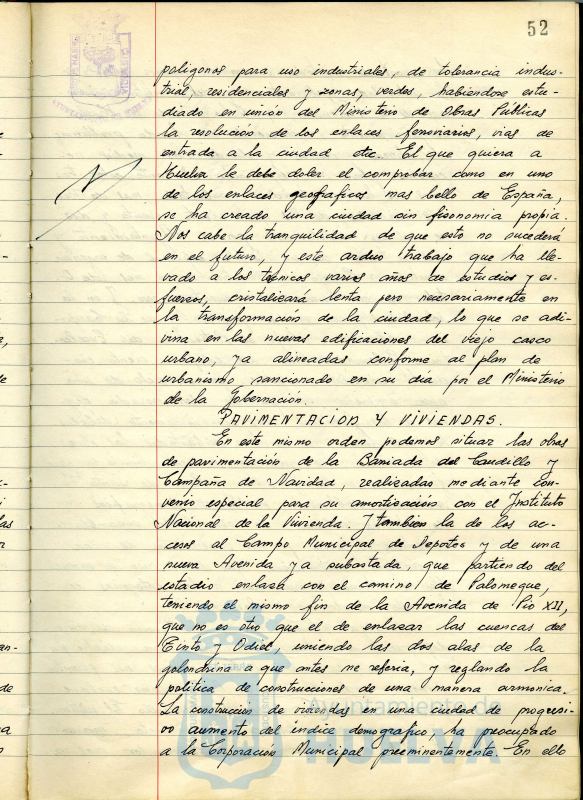 52
poligonos para uso industriales, de tolerancia indus-
trial, residenciales y zonas, verdes, habiendose estu-
diado en unión del Ministerio de Obras Públicas
la resolución de los enlaces ferroviarios, vias de
entrada a la ciudad etc. El que quiera a
Huelva le debe doler el comprobar como en uno
de los enlaces geograficos mas bello de España,
se ha creado una ciudad sin fisonomia propia.
Nos cabe la tranquilidad de que esto no sucederá
en el futuro, y este arduo trabajo que ha lle-
vado a los técnicos varios años de estudios y es-
fuerzos, cristalizará lenta pero necesariamente en
la transformación de la ciudad, lo que se adi-
vina en las nuevas edificaciones del viejo casco
urbano, ya alineadas conforme al plan de
urbanismo sancionado en su día por el Ministerio
de la Gobernación.
PAVIMENTACION Y VIVIENDAS.
En este mismo orden podemos situar las obras
de pavimentación de la Barriada del Caudillo y
Campaña de Navidad, realizadas mediante con-
venio especial para su amortización con el Instituto
Nacional de la Vivienda. Y tambien la de los ac-
cesos al Campo Municipal de Deportes y de una
nueva Avenida ya subastada, que partiendo del
estadio enlaza con el camino de Palomeque,
teniendo el mismo fin de la Avenida de Pio XII,
que no es otro que el de enlazar las cuencas del
Tinto y Odiel, uniendo las dos alas de la
golondrina a que antes me referia, y reglando la
politica de construcciones de una manera armonica.
La construcción de viviendas en una ciudad de progresi-
vo aumento del índice demografico, ha preocupado
a la Corporación Municipal preeminentemente. En ello